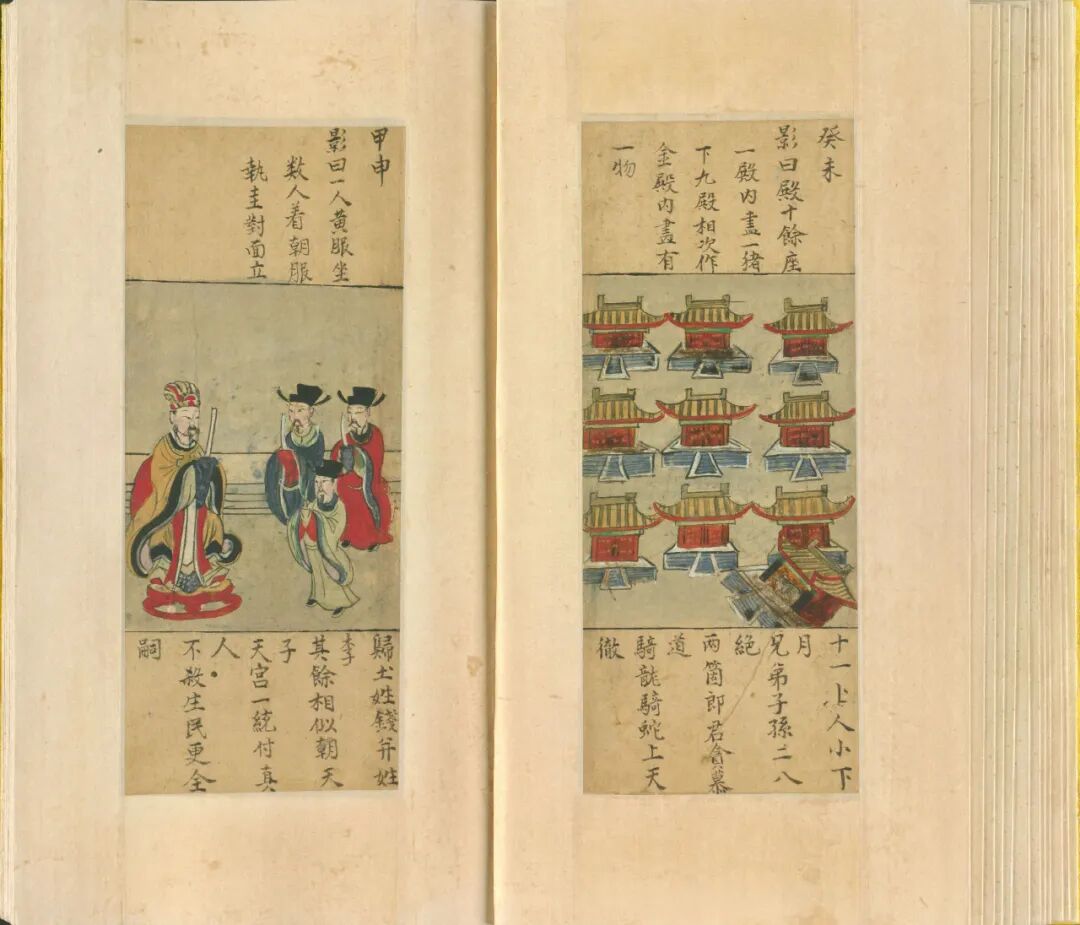 癸未
影曰殿十餘座
一殿内盡一猪
下九殿相次作
金殿内盡有
一物
十一上人小下
月
兄弟子孫二八
絶
両箇郎君貪慕
道
騎龍騎蛇上天
徹
甲申
影曰一人黄服坐
数人着朝服
執圭對面立
歸土姓錢并姓
李
其餘相似朝天
子
天宮一統付真
人
不殺生民更全
嗣